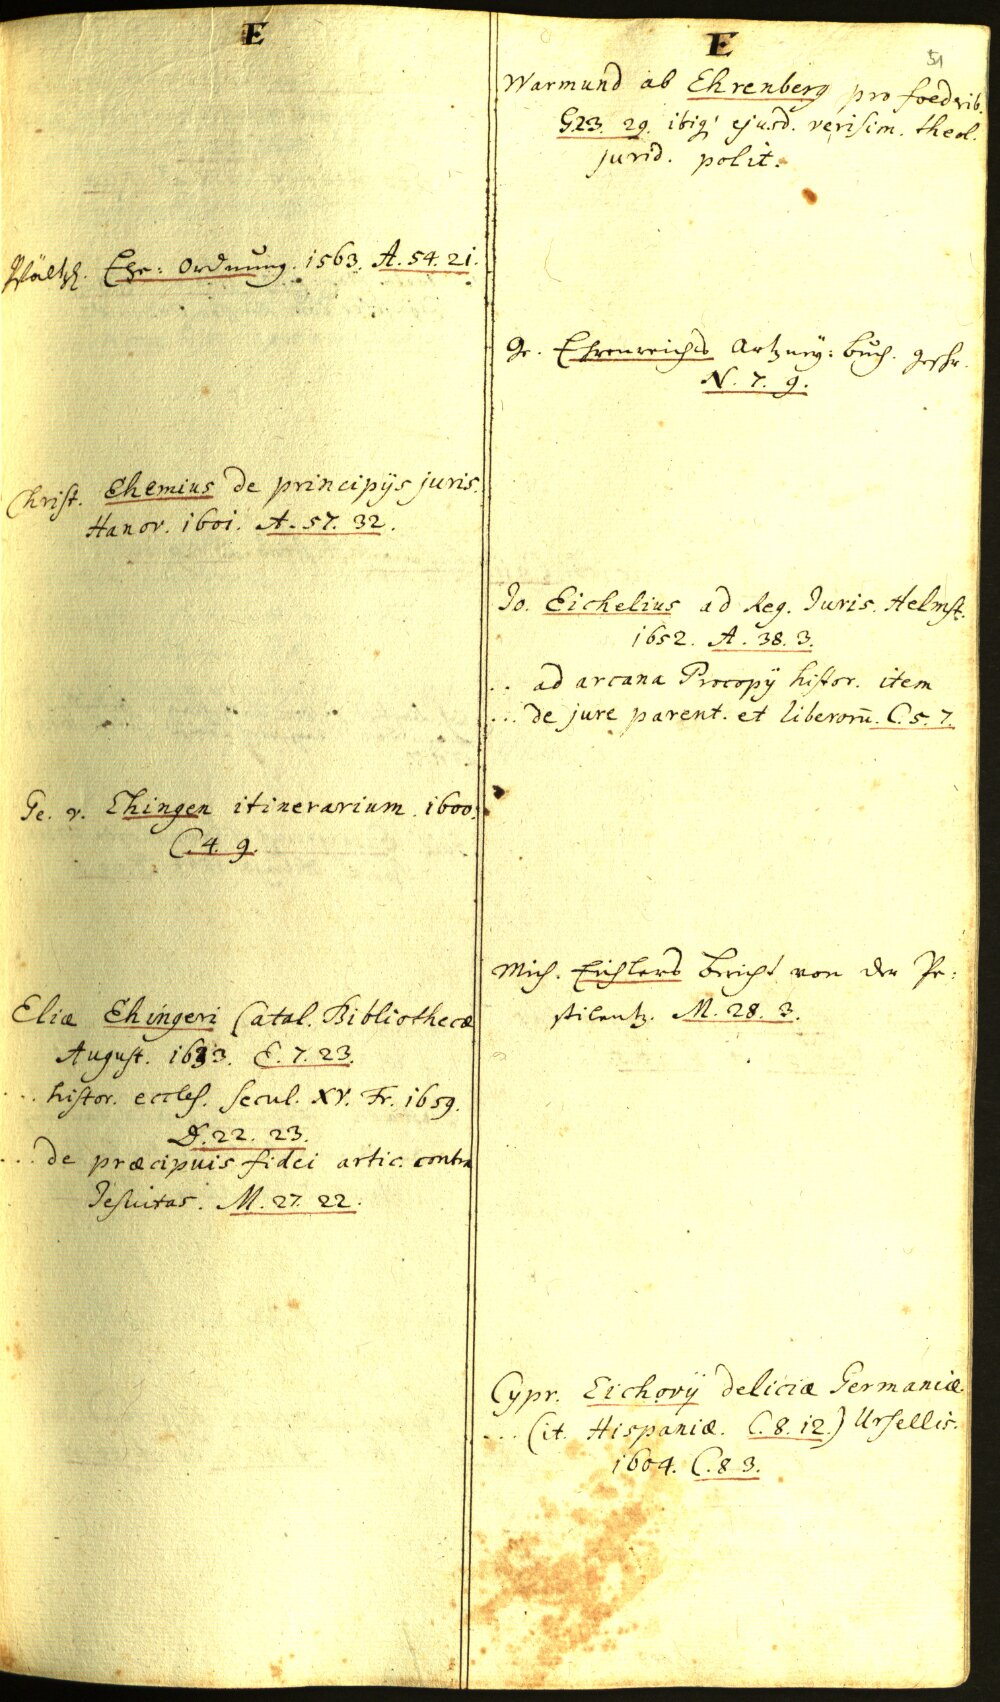 E
Pfältz. Ehe: Ordnung. 1563. A. 54. 21.
Christ. Ehemius de principijs juris.
Hanov. 1601. A. 57. 32.
Ge. v. Ehingen itinerarium. 1600.
C. 4. 9.
Eliæ Ehingeri Catal. Bibliothecæ
August. 1633. E. 7. 23.
... histor. eccles. secul. XV. Fr. 1659.
D. 22. 23.
... de præcipuis fidei artic. contra
Jesuitas. M. 27. 22.
E
51
Warmund ab Ehrenberg pro foederib.
G23. 29. ibiq; ejusd. verisim. theol.
jurid. polit.
Ge. Ehrenreichs Artzney: buch. geschr.
N. 7. 9.
Jo. Eichelius ad Reg. Juris. Helmst.
1652. A. 38. 3.
.. ad arcana Procopij histor. item
... de jure parent. et liberorū. C. 5. 7.
Mich. Eichlers bericht von der Pe:
stilentz. M. 28. 3.
Cypr. Eichovij deliciæ Germaniæ.
... (it. Hispaniæ. C. 8. 12.) Ursellis.
1604. C. 8 3.